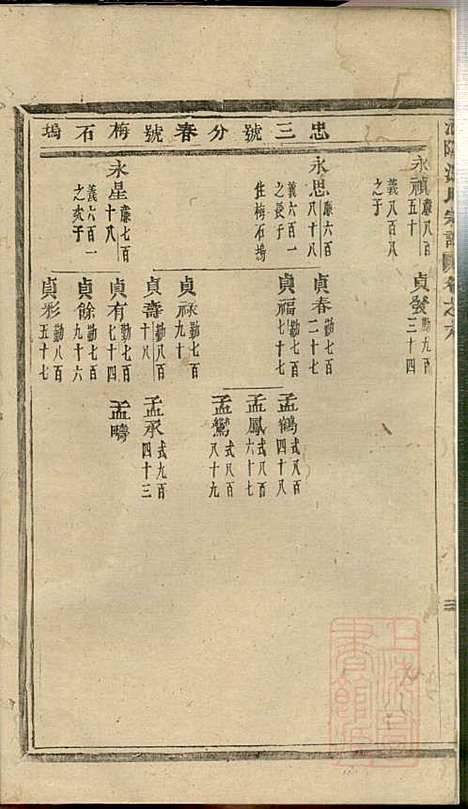 忠三號分春號梅石塢
永禎廉八百五十
義八百八之子
貞發勤九百三十四
永思廉六百八十八
義六百一之長子
住梅石塢
貞春勤七百二十七
貞福勤七百七十七
孟鶴式八百四十八
孟鳳式八百六十七
孟鸞式八百八十九
貞祿勤七百九十
永星廉七百十八
義六百一之次子
貞壽勤八百十八
孟承式九百四十三
貞有勤七百七十四
孟疇
貞餘勤七百九十六
貞彩勤八百五十七
氏宗譜
卷之六
三